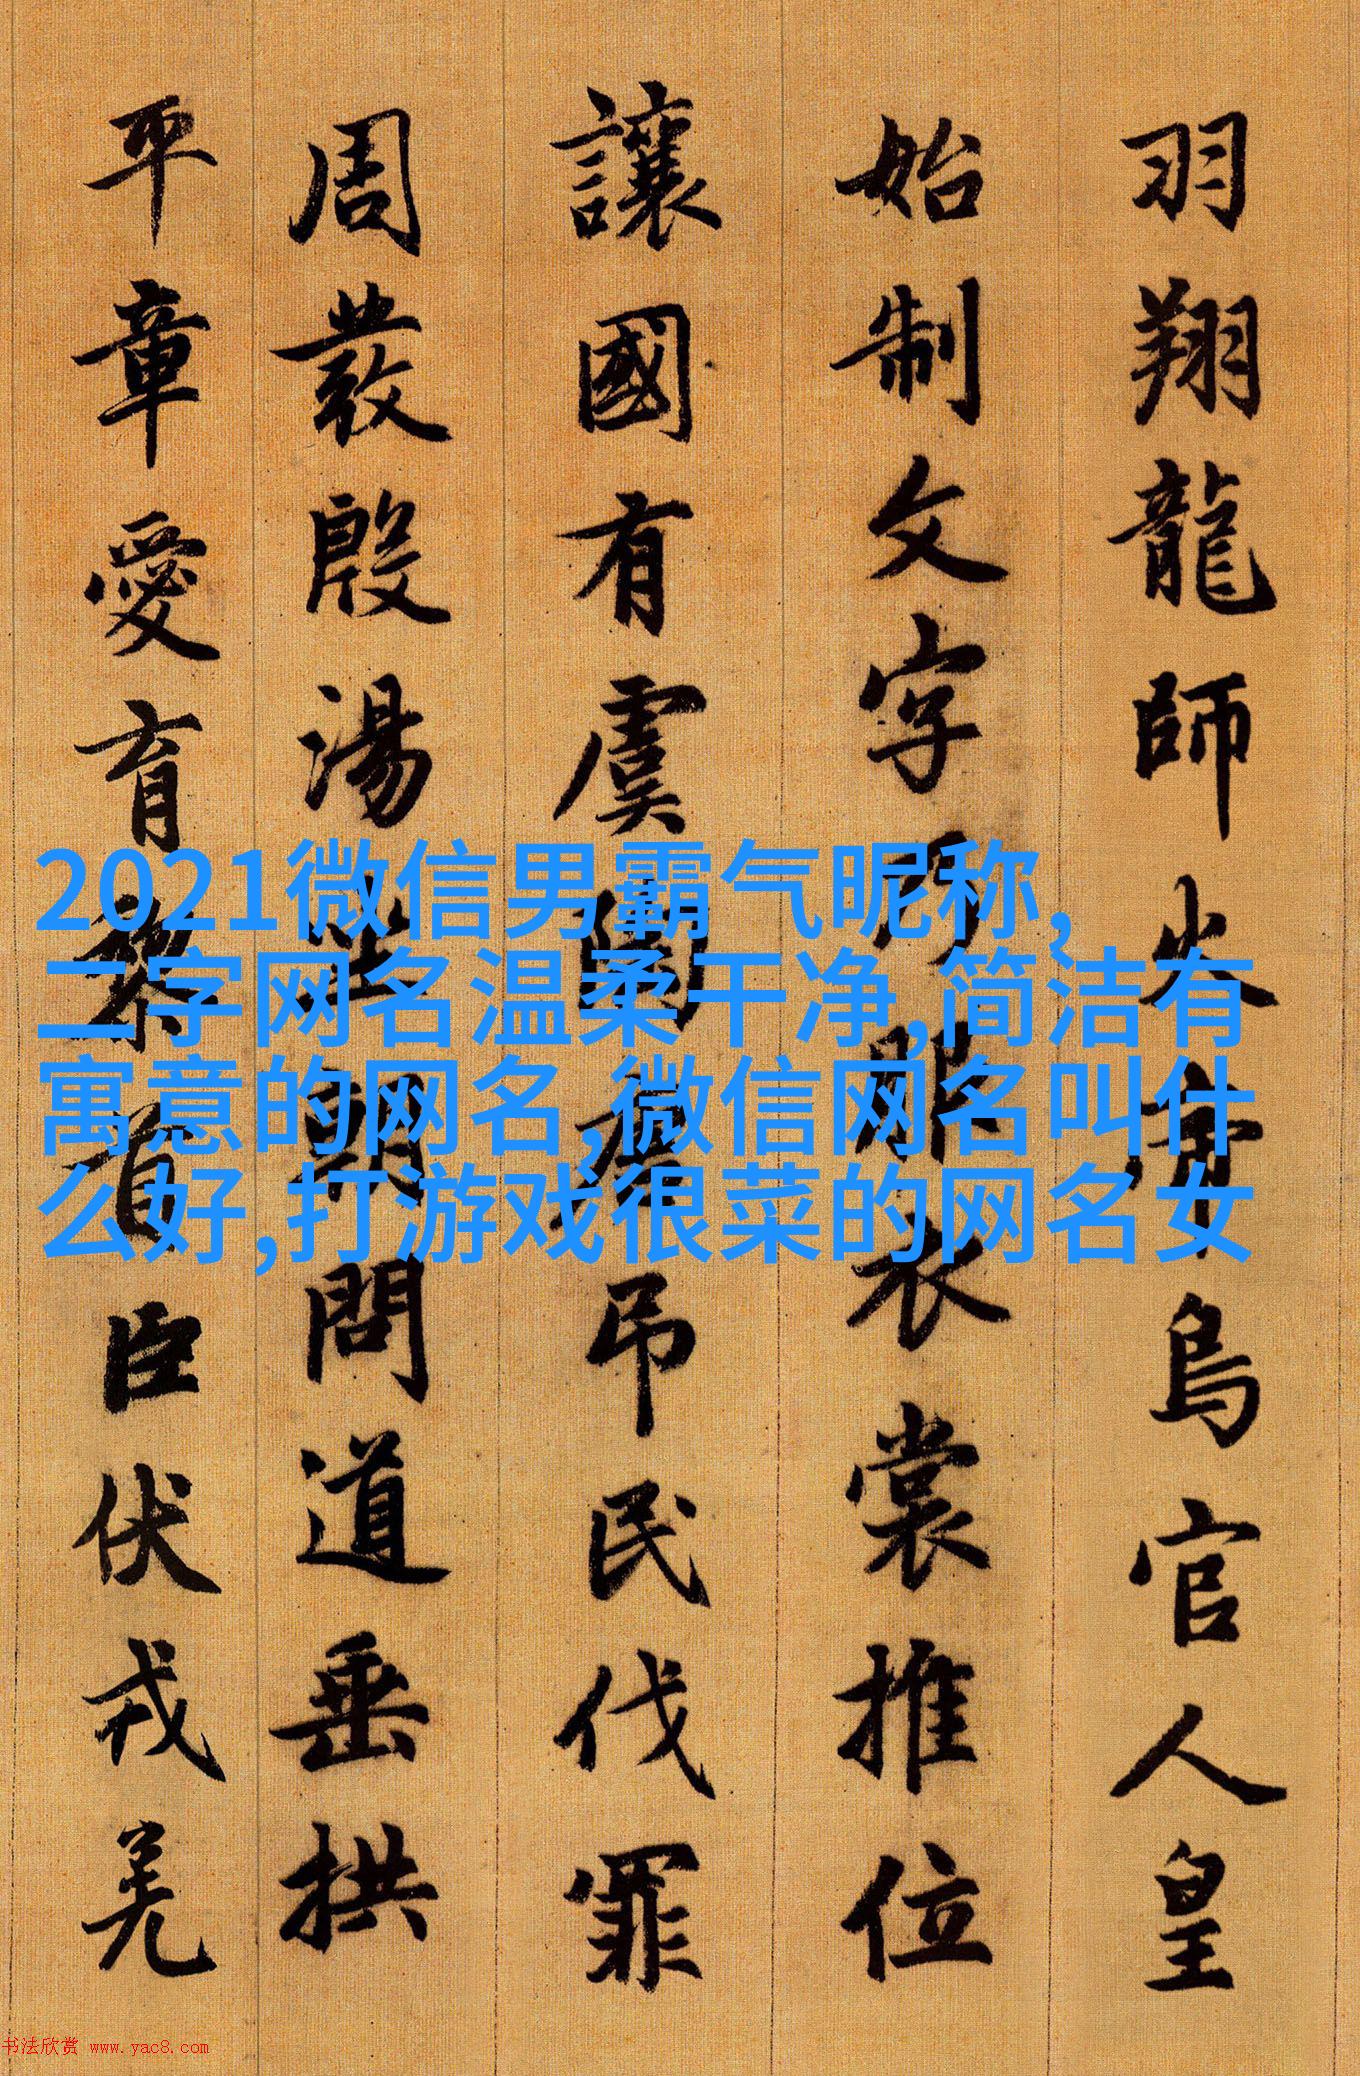 羽翔龍師火帝鳥官人皇
始制文字乃服衣裳推位
讓國有虞陶唐吊民伐罪
周發殷湯坐朝問道垂拱
平章愛育黎首臣伏戎羌
2021微信男霸气昵称,
二字网名温柔干净,简洁有
寓意的网名,微信网名叫什
么好,打游戏很菜的网名女
书法欣赏 www.yac8.com